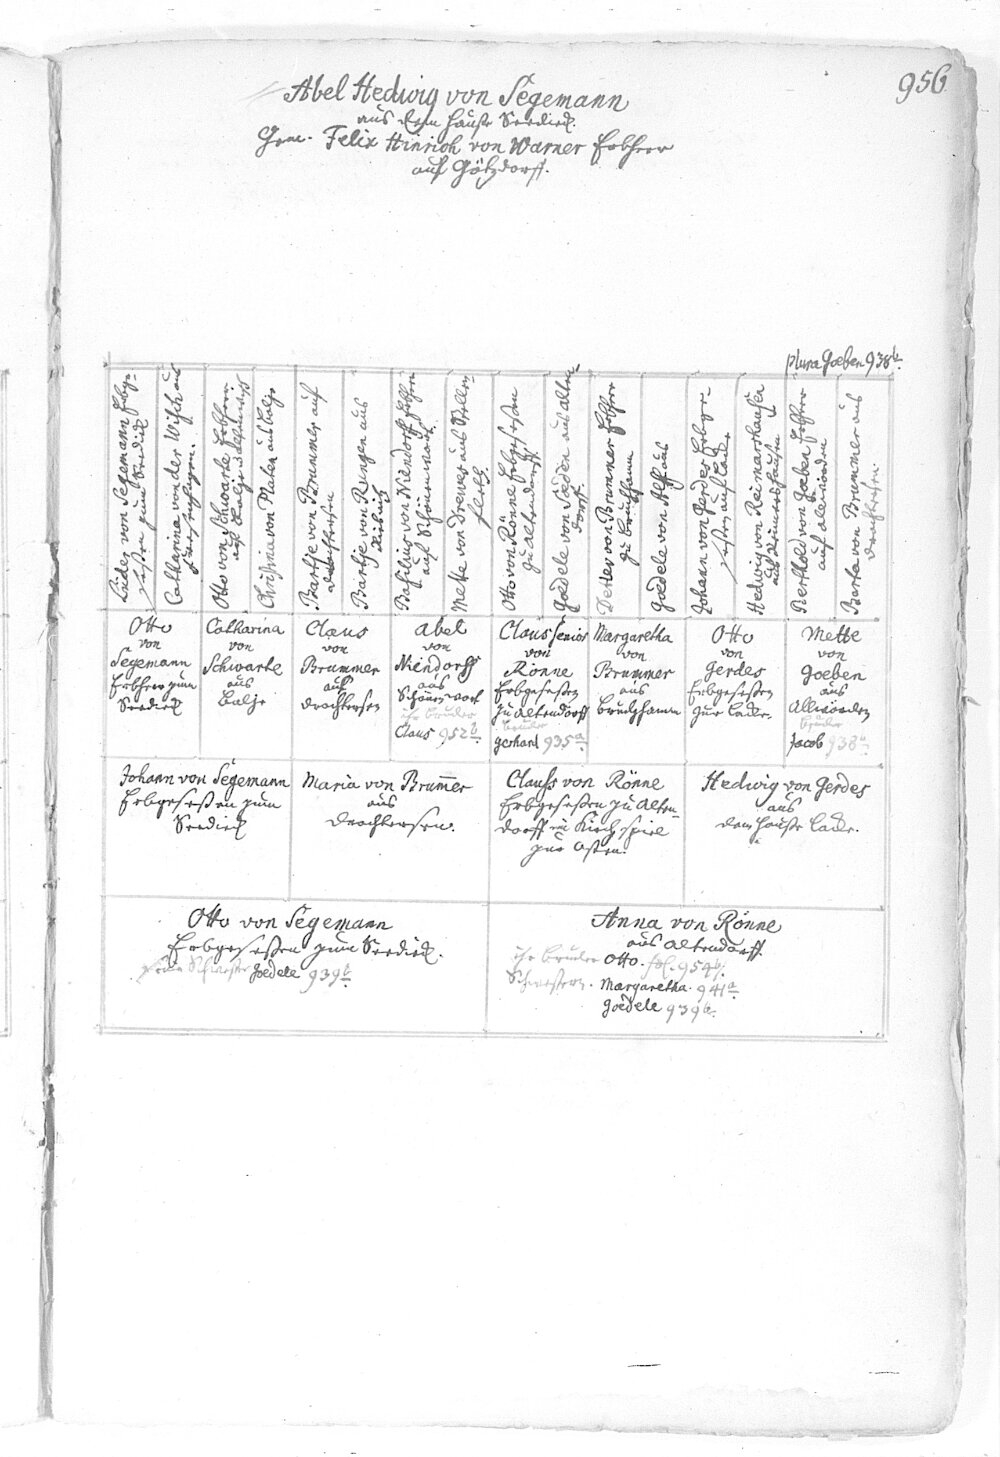 956
Abel Hedwig von Segemann
aus dem Hause Seedieck.
Gem. Felix Hinrich von Warner Erbherr
auf Götzdorff.
plura Goeben 938b.
Lüder von Segemann Erbge-
seßen zum Seedieck
Catharina von der Wisch aus
Otto von Schwarte Erbherr
auf Balje
Christina von Platen aus Balje
Bartje von Brummer auf
Drochtersen
Bartje von Rungen aus
Basilius von Niendorff Erbherr
auf Schönenworth
Mette von Drewes aus Steller-
fleth
Otto von Rönne Erbgeseßen
zu Altendorff
Goedele von Sÿden aus Alten-
dorff
Detlev von Brummer Erbherr
zu Brutzhamm
Goedele von Alff aus
Johann von Gerdes Erbge-
seßen auf Lacke
Hedwig von Reimarshausen
aus Reimershausen
Berthold von Goeben Erbherr
auf Allwörden
Barta von Brummer aus
Drochtersen.
Otto
von
Segemann
Erbherr zum
Seedieck
Catharina
von
Schwarte
aus
Balje
Claus
von
Brummer
auf
Drochtersen
Abel
von
Niendorff
aus
Schönenworth
ihr bruder
Claus 952b.
Claus senior
von
Rönne
Erbgeseßen
zu Altendorff
bruder
Gerhard 935a.
Margaretha
von
Brummer
aus
Brutzhamm
Otto
von
Gerdes
Erbgeseßen
zur Lacke.
Mette
von
Goeben
aus
Allwörden
bruder
Jacob 938b.
Johann von Segemann
Erbgeseßen zum
Seedieck
Maria von Brum̅er
aus
Drochtersen.
Clauss von Rönne
Erbgeseßen zu Alten-
dorff im Kirchspiel
zur Osten.
Hedwig von Gerdes
aus
dem Hause Lacke.
Otto von Segemann
Erbgeseßen zum Seedieck.
seine Schwester Goedele 939b.
Anna von Rönne
aus Altendorff.
ihr bruder Otto. fol. 954b.
Schwestern. Margaretha. 941a.
Goedele 939b.